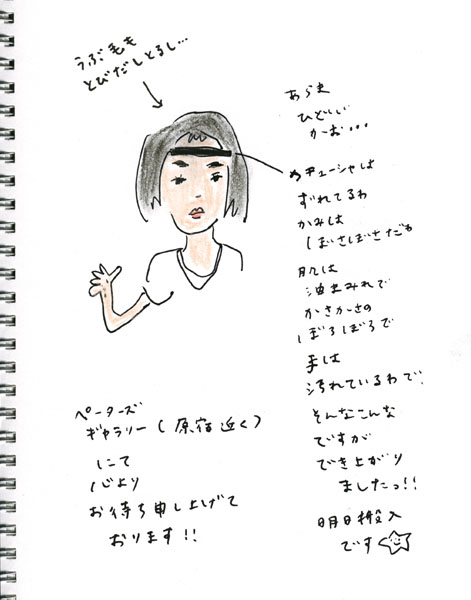 うぶ毛も
とびだしとるし…
あらま
ひどいい
かーお…
カチューシャは
ずれてるわ
かみは
しばさばさだわ
肌は
油まみれで
かさかさの
ぼろぼろで
手は
汚れているわで、
そんなこんな
ですが
でき上がり
ましたっ!!
明日搬入
です
ペーターズ
ギャラリー(原宿近く)
にて
心より
お待ち申し上げて
おります!!